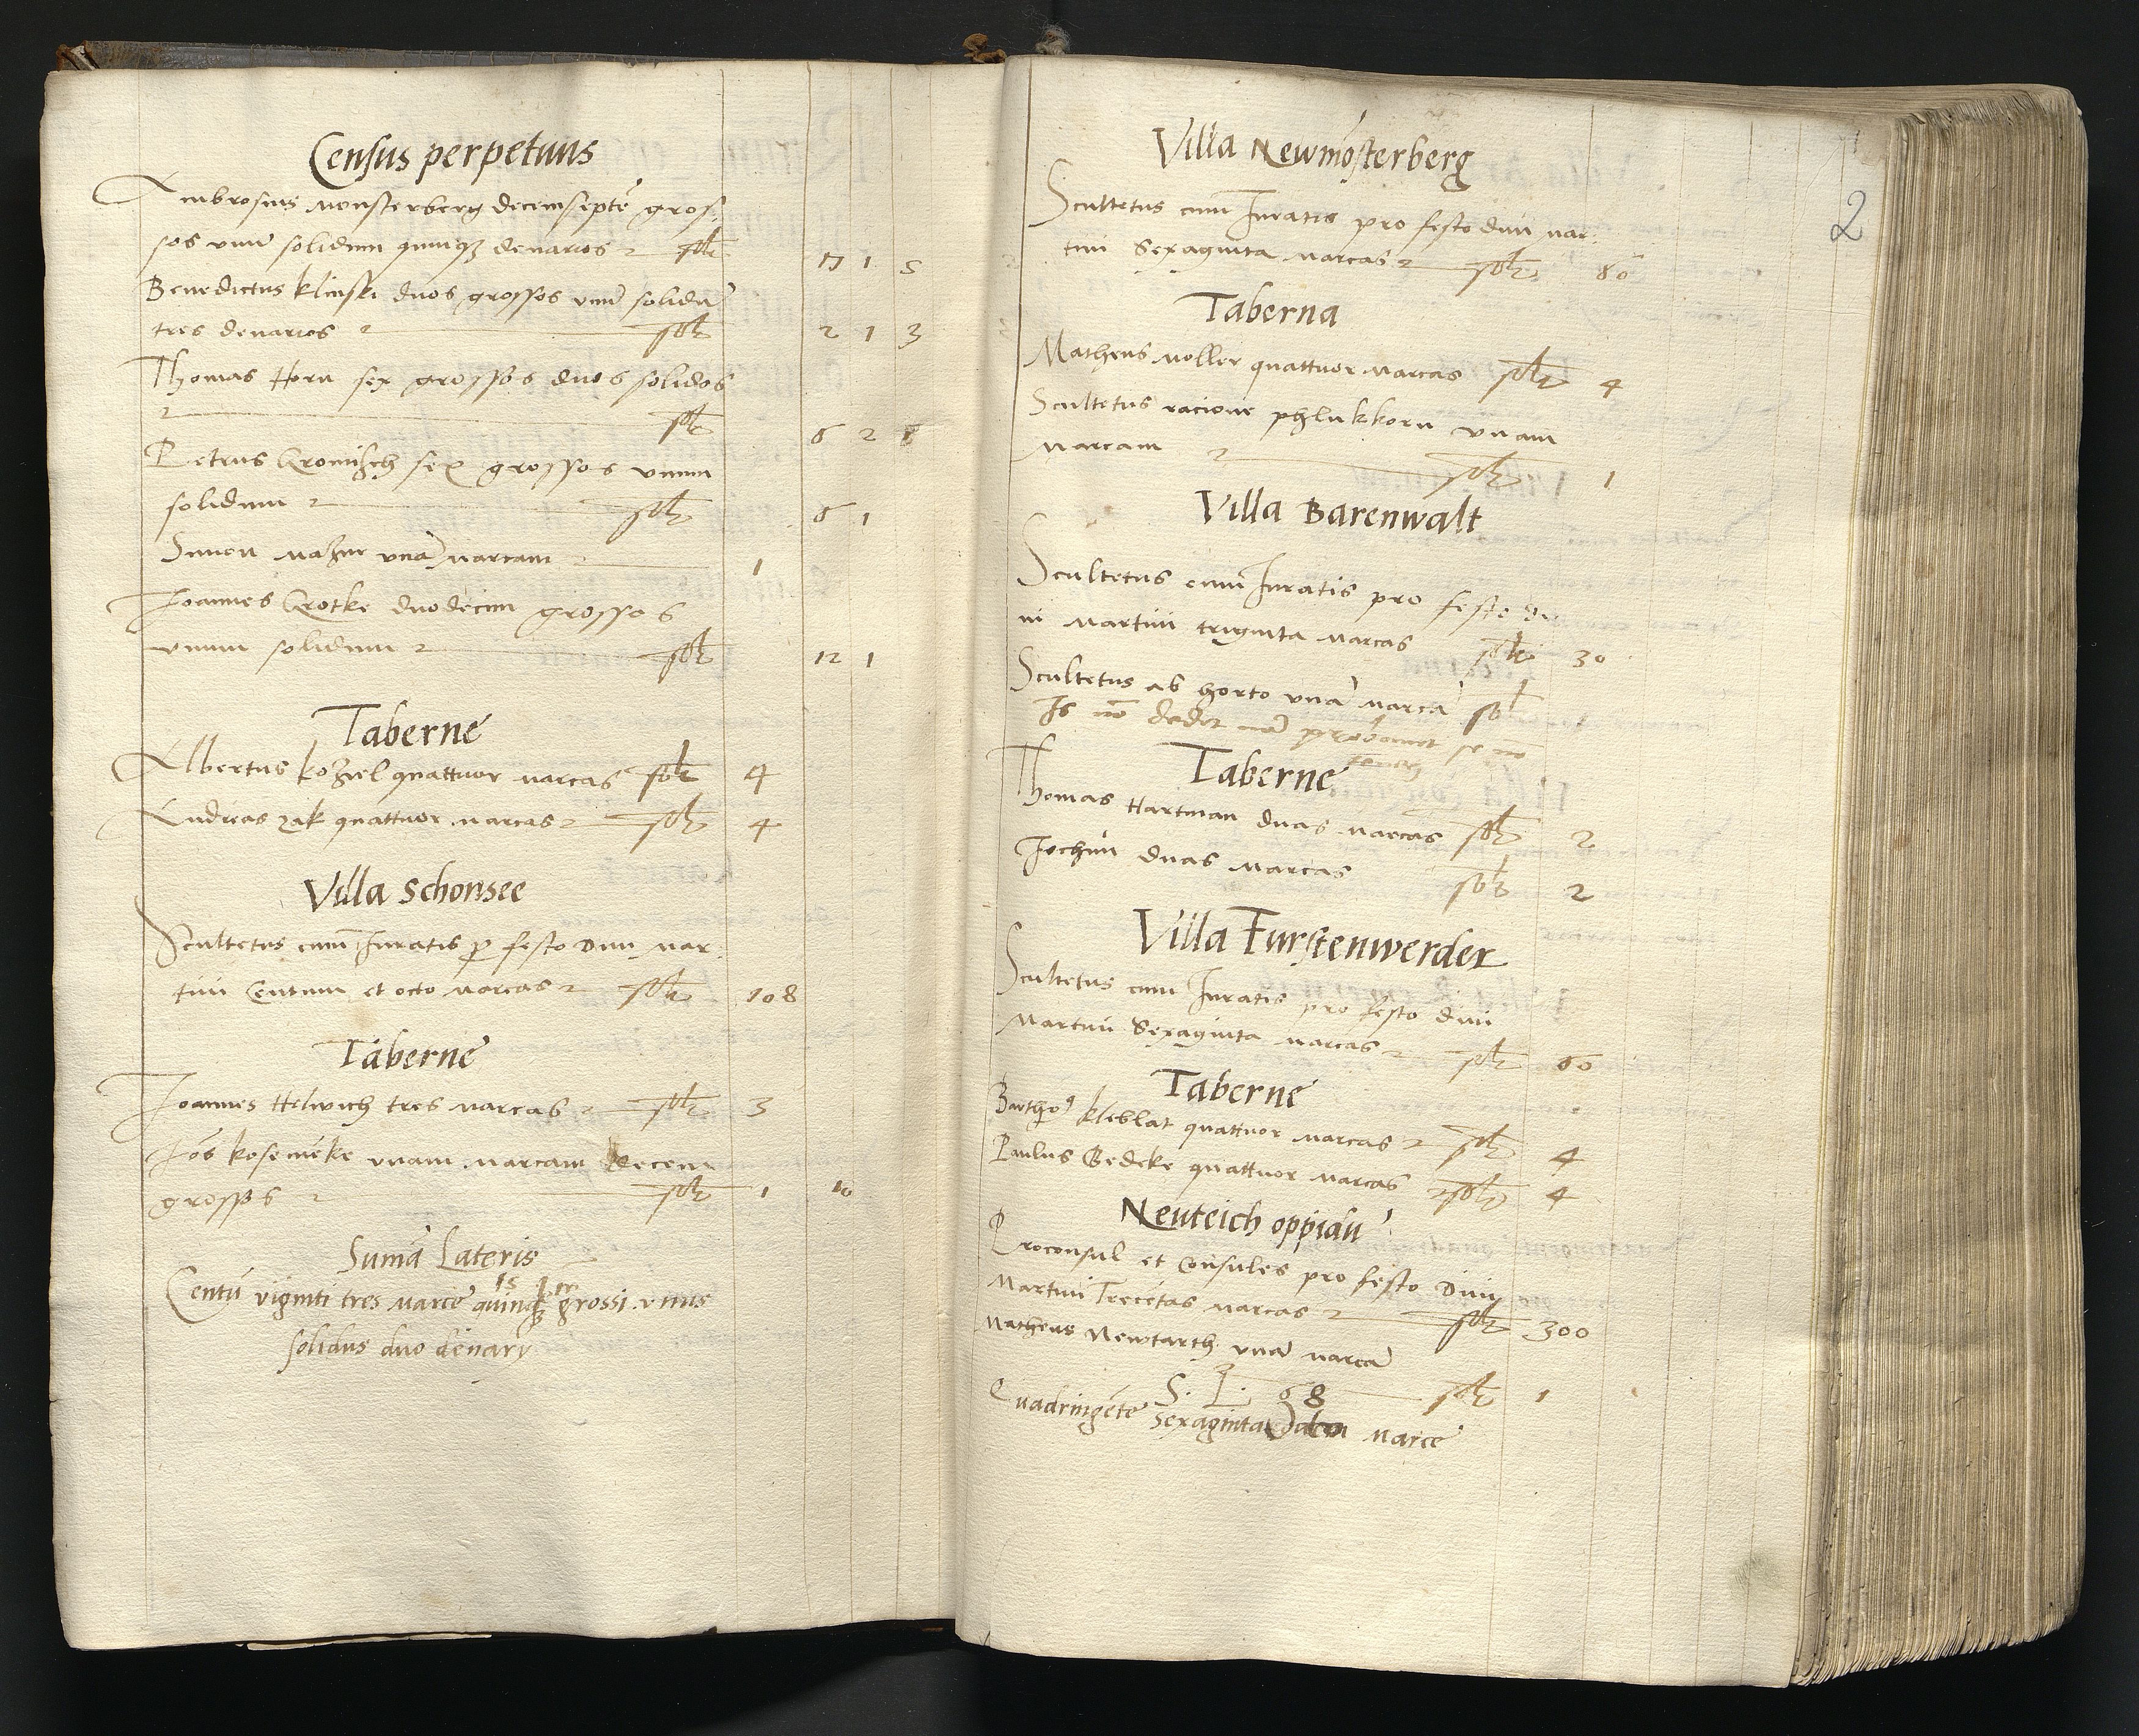 Census perpetuus
Ambrosius Monsterberg decemsepte gros-
sos unu solidum quinq3 denarios solt 17 1 5
Benedictus Klinski duos grossos unu solidu
tres denarios solt 2 1 3
Thomas Horn sex grossos duos solidos
solt 6 2
Petrus Cromisch sex grossos unum
solidum solt 6 1
Simon Mazur una marcam 1
Joannes Crotke duodecim grossos
unum solidum solt 12 1
Taberne
Albertus Koziel quattuor marcas solt 4
Andreas zak quattuor marcas solt 4
Villa Schonsee
Scultetus cum Juratis p festo Divi Mar-
tini Centum et octo marcas solt 108
Taberne
Joannes Helwich tres marcas solt 3
Joes Kosemeke unam marcam decem
grossos solt 1 10
Suma Lateris
15
Centu viginti tres marce quinq3 grossi unus
solidus duo denarii
2
Villa Newmosterberg
Scultetus cum Juratis pro festo divi Mar-
tini Sexaginta marcas solt 60
Taberna
Matheus Moller quattuor marcas solt 4
Scultetus racione phlukkorn unam
marcam solt 1
Villa Barenwalt
Scultetus cum Juratis pro festo Di-
vi Martini triginta marcas solt 30
Scultetus ab horto una marca sol
Is no dedit se no
Taberne
Thomas Hartman duas marcas solt 2
Jochim duas marcas solt 2
Villa Furstenwerder
Scultetus cum Juratis pro festo divi
Martini Sexaginta marcas solt 60
Taberne
Bartho9 Kleblat quattuor marcas solt 4
Paulus Gedeke quattuor marcas solt 4
Neuteich oppidu
Proconsul et Consules pro festo Divi
Martini Trecetas marcas solt 300
Matheus Newtarth una marca
S. L. 68 solt 1
Quadringete sexaginta marce